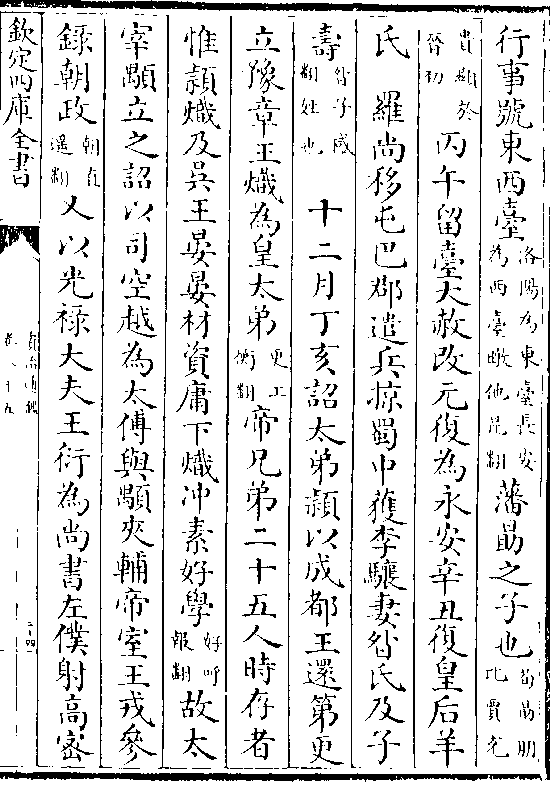 行事號東西臺洛陽為東臺長安為西臺暾他昆翻藩勗之子也荀勗朋比賈充
貴顯於晉初丙午留臺大赦改元復為永安辛丑復皇后羊
氏 羅尚移屯巴郡遣兵掠蜀中獲李驤妻昝氏及子
壽昝子感翻姓也 十二月丁亥詔太弟穎以成都王還第更
立豫章王熾為皇太弟更工衡翻帝兄弟二十五人時存者
惟穎熾及吳王晏晏材資庸下熾沖素好學好呼報翻故太
宰顒立之詔以司空越為太傅與顒夾輔帝室王戎參
錄朝政朝直遥翻又以光祿大夫王衍為尚書左僕射高密
欽定四庫全書
資治通鑑
卷八十五